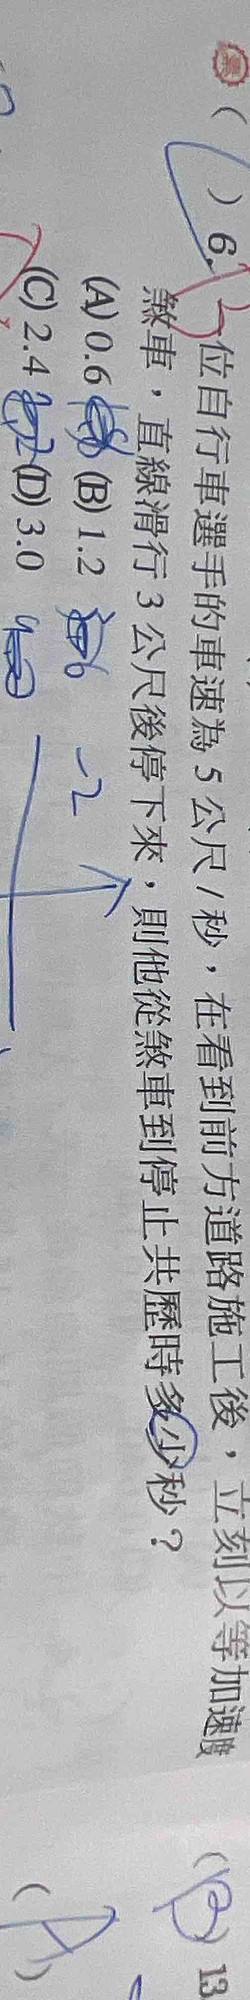 ( ) 6. 一位自行車選手的車速為 5 公尺/秒,在看到前方道路施工後,立刻以等加速度
煞車,直線滑行 3 公尺後停下來,則他從煞車到停止共歷時多少秒?
(A) 0.6 (B) 1.2
(C) 2.4 (D) 3.0
-2
(B) 13
(A)